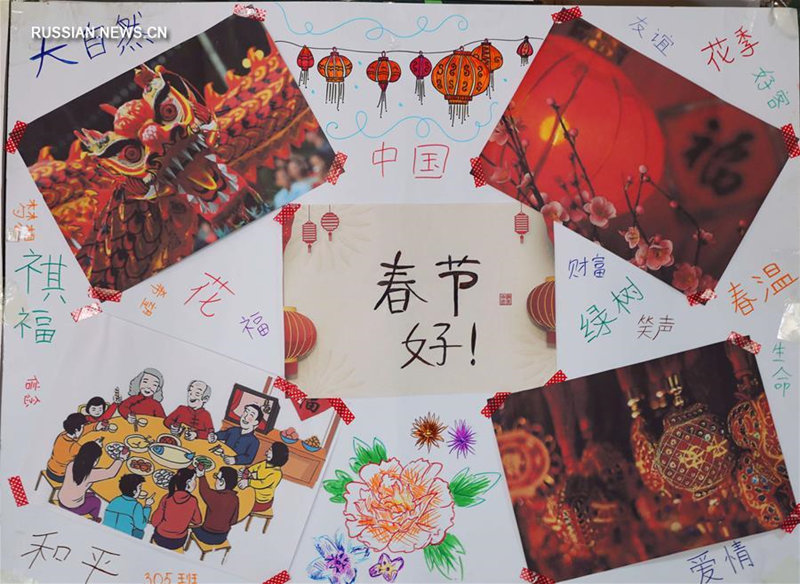 RUSSIAN NEWS.CN
大自然
友谊
花季
好客
中国
福
梦想
祺福
希望
花
福
春节
好!
财富
绿树
笑声
春温
生命
信念
福
和平
305班
爱情